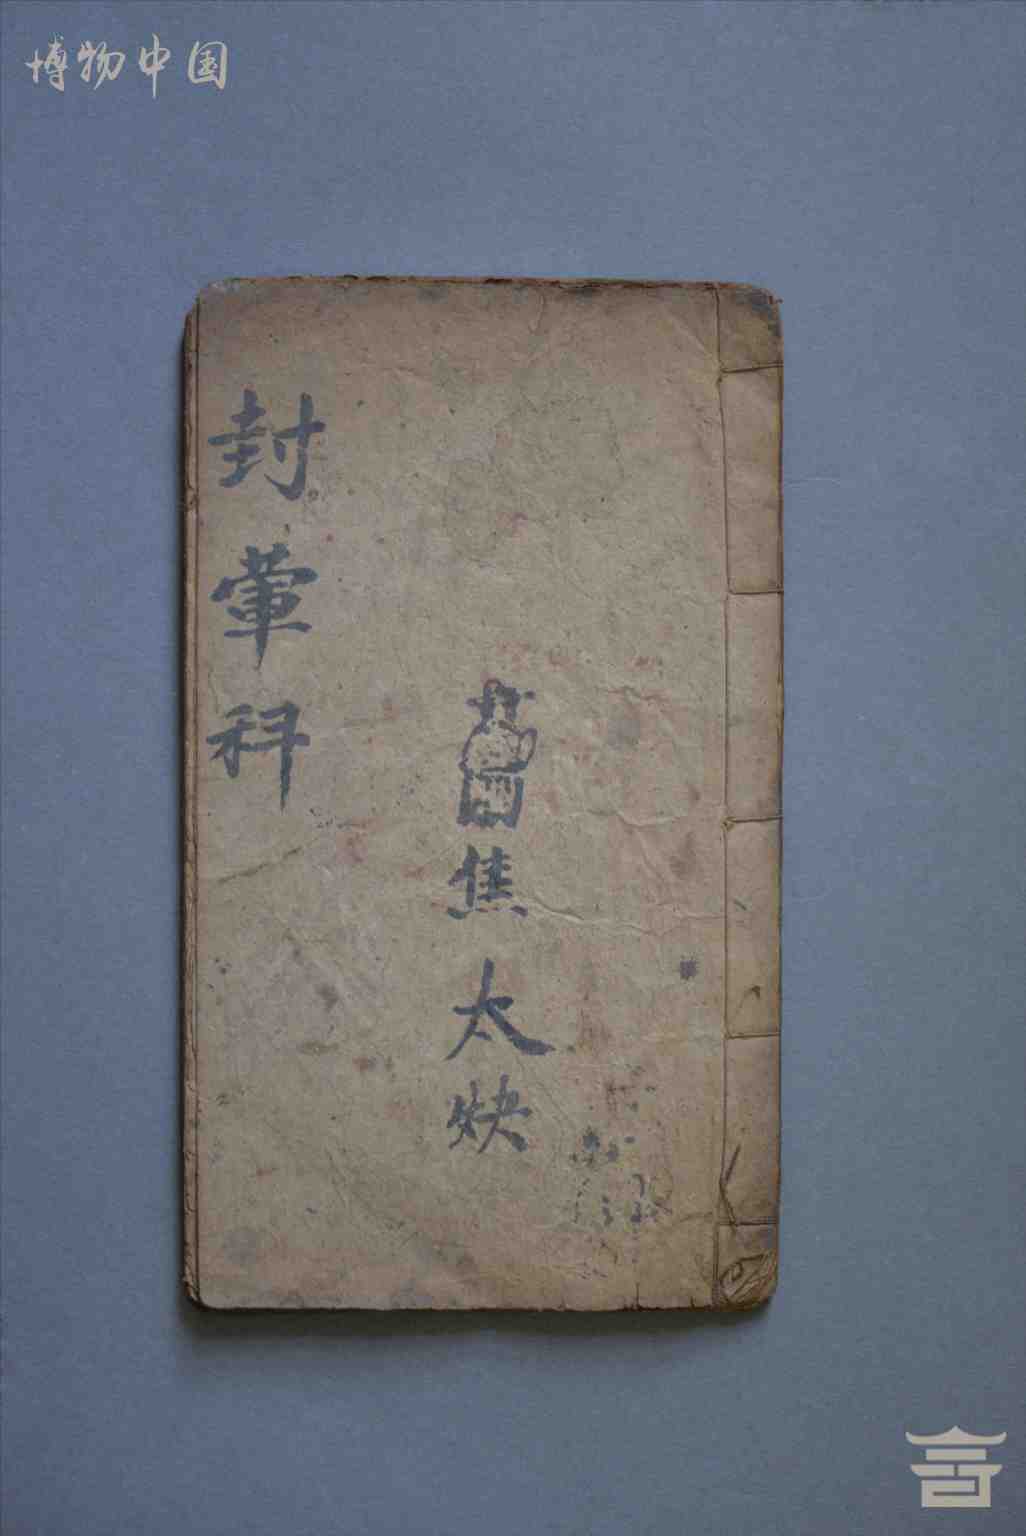 博物中国
封葷科
焦太炔